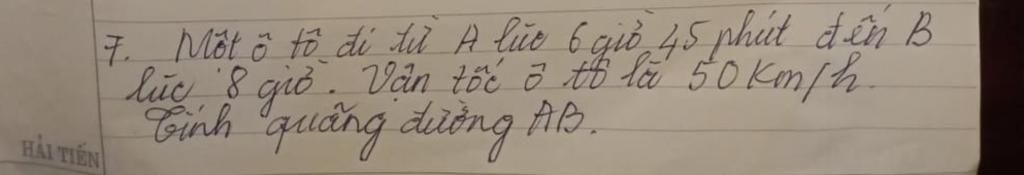 7. Một ô tô đi từ A lúc 6 giờ 45 phút đến B
lúc 8 giờ. Vận tốc ô tô là 50 Km/h.
Tính quãng đường AB.
HẢI TIẾN